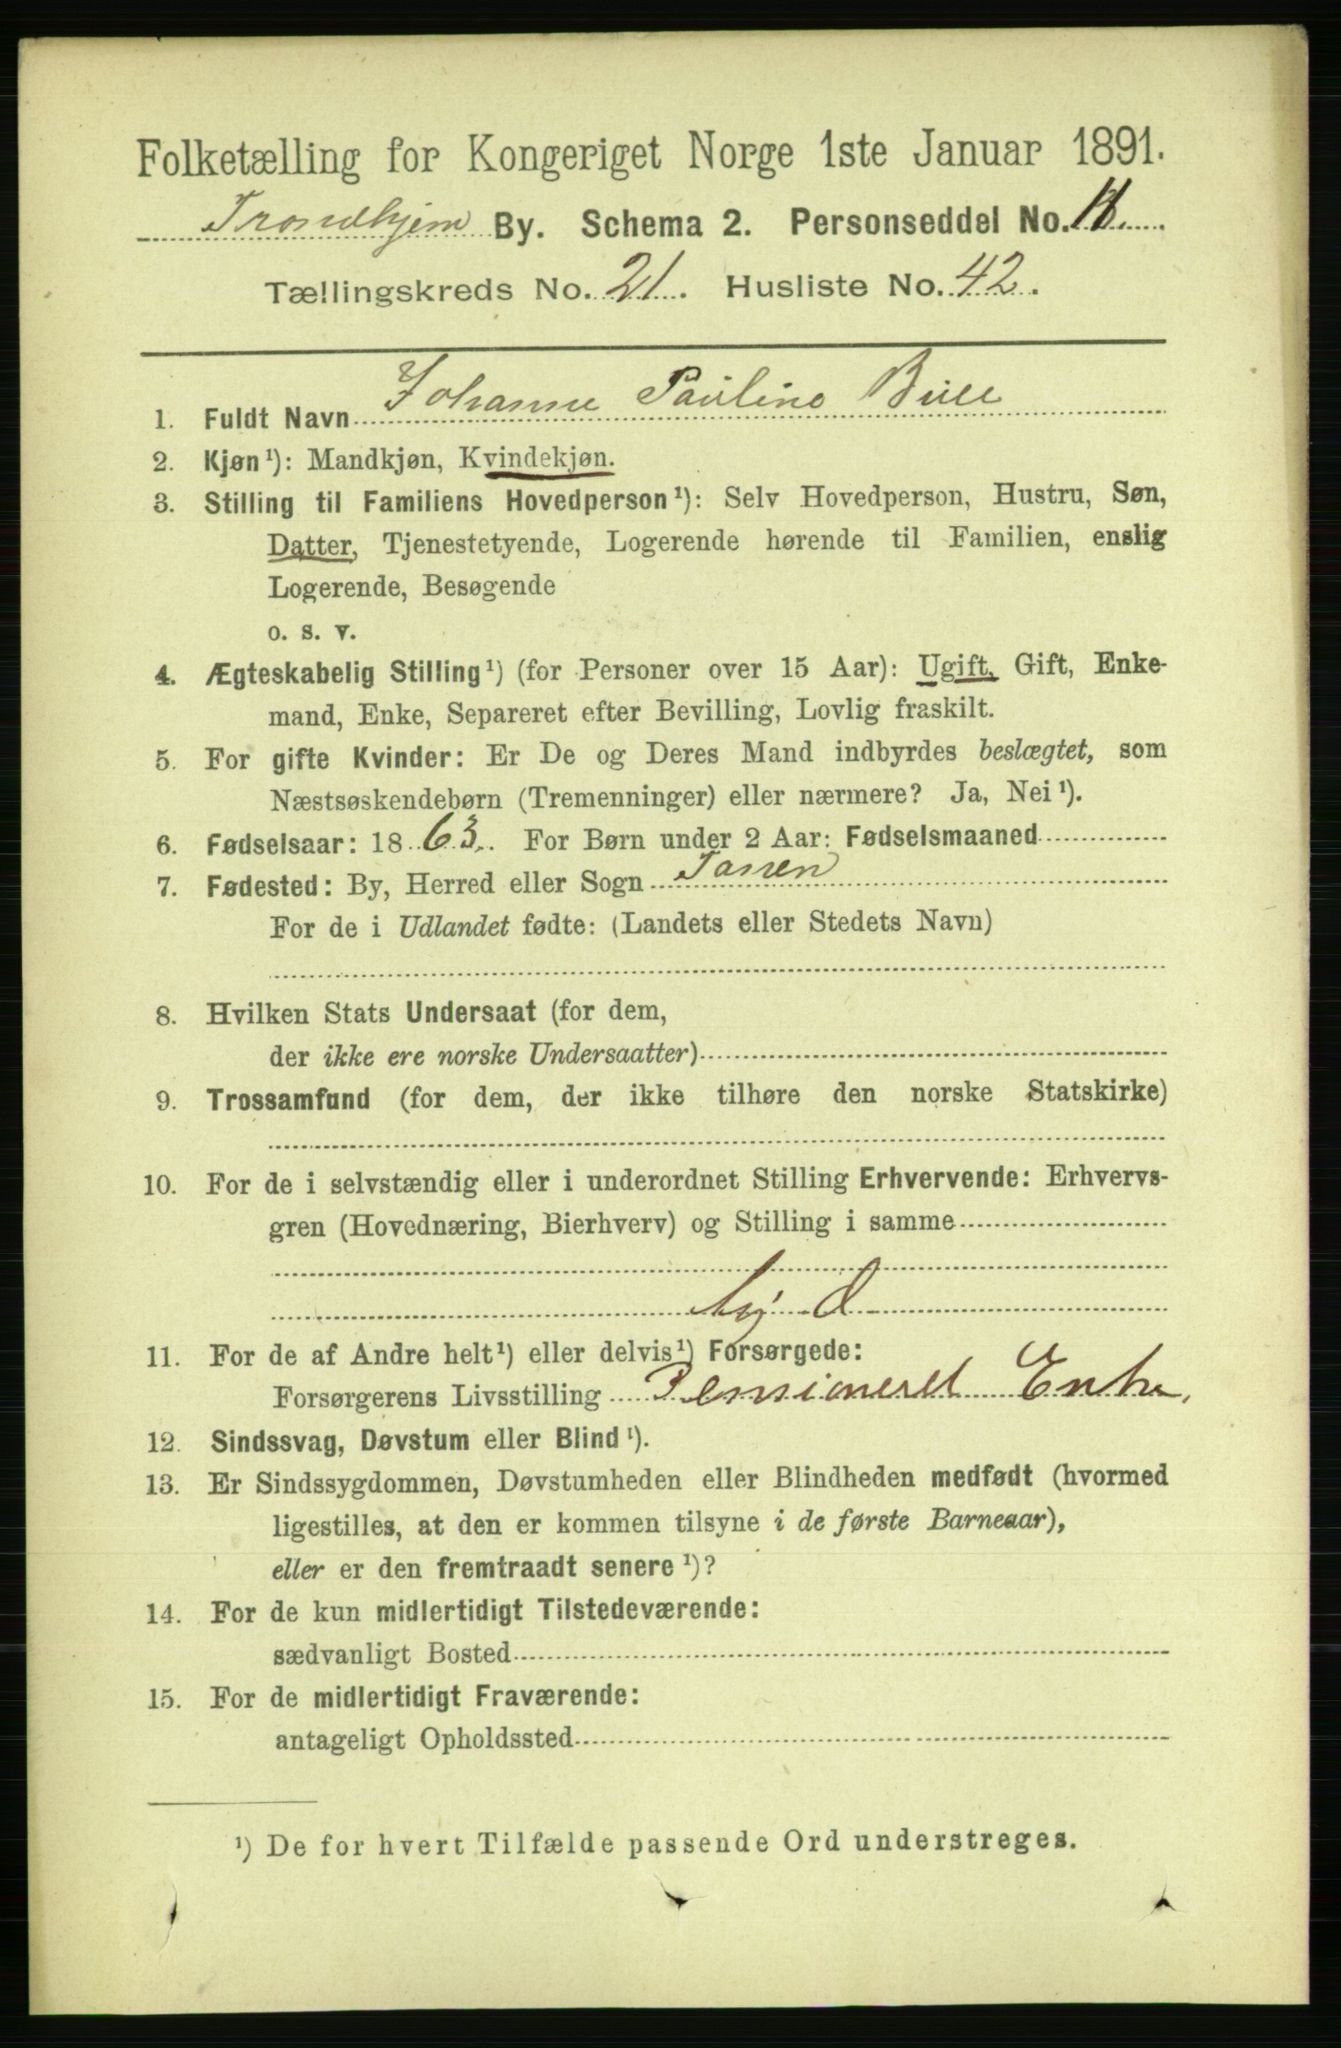 Folketælling for Kongeriget Norge 1ste Januar 1891.
Trondhjem By. Schema 2. Personseddel No. 11.
Tællingskreds No. 21. Husliste No. 42.
1. Fuldt Navn Johanne Pauline Bull
2. Kjøn¹): Mandkjøn, Kvindekjøn.
3. Stilling til Familiens Hovedperson¹): Selv Hovedperson, Hustru, Søn,
Datter, Tjenestetyende, Logerende hørende til Familien, enslig
Logerende, Besøgende
o. s. v.
4. Ægteskabelig Stilling¹) (for Personer over 15 Aar): Ugift, Gift, Enke-
mand, Enke, Separeret efter Bevilling, Lovlig fraskilt.
5. For gifte Kvinder: Er De og Deres Mand indbyrdes beslægtet, som
Næstsøskendebørn (Tremenninger) eller nærmere? Ja, Nei¹).
6. Fødselsaar: 1863. For Børn under 2 Aar: Fødselsmaaned
7. Fødested: By, Herred eller Sogn
For de i Udlandet fødte: (Landets eller Stedets Navn)
8. Hvilken Stats Undersaat (for dem,
der ikke ere norske Undersaatter)
9. Trossamfund (for dem, der ikke tilhøre den norske Statskirke)
10. For de i selvstændig eller i underordnet Stilling Erhvervende: Erhvervs-
gren (Hovednæring, Bierhverv) og Stilling i samme
11. For de af Andre helt¹) eller delvis¹) Forsørgede:
Forsørgerens Livsstilling Pensioneret Enke.
12. Sindssvag, Døvstum eller Blind¹).
13. Er Sindssygdommen, Døvstumheden eller Blindheden medfødt (hvormed
ligestilles, at den er kommen tilsyne i de første Barneaar),
eller er den fremtraadt senere¹)?
14. For de kun midlertidigt Tilstedeværende:
sædvanligt Bosted
15. For de midlertidigt Fraværende:
antageligt Opholdssted
¹) De for hvert Tilfælde passende Ord understreges.